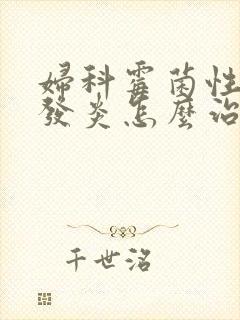 婦科霉菌性
發炎怎麼治
千世洺